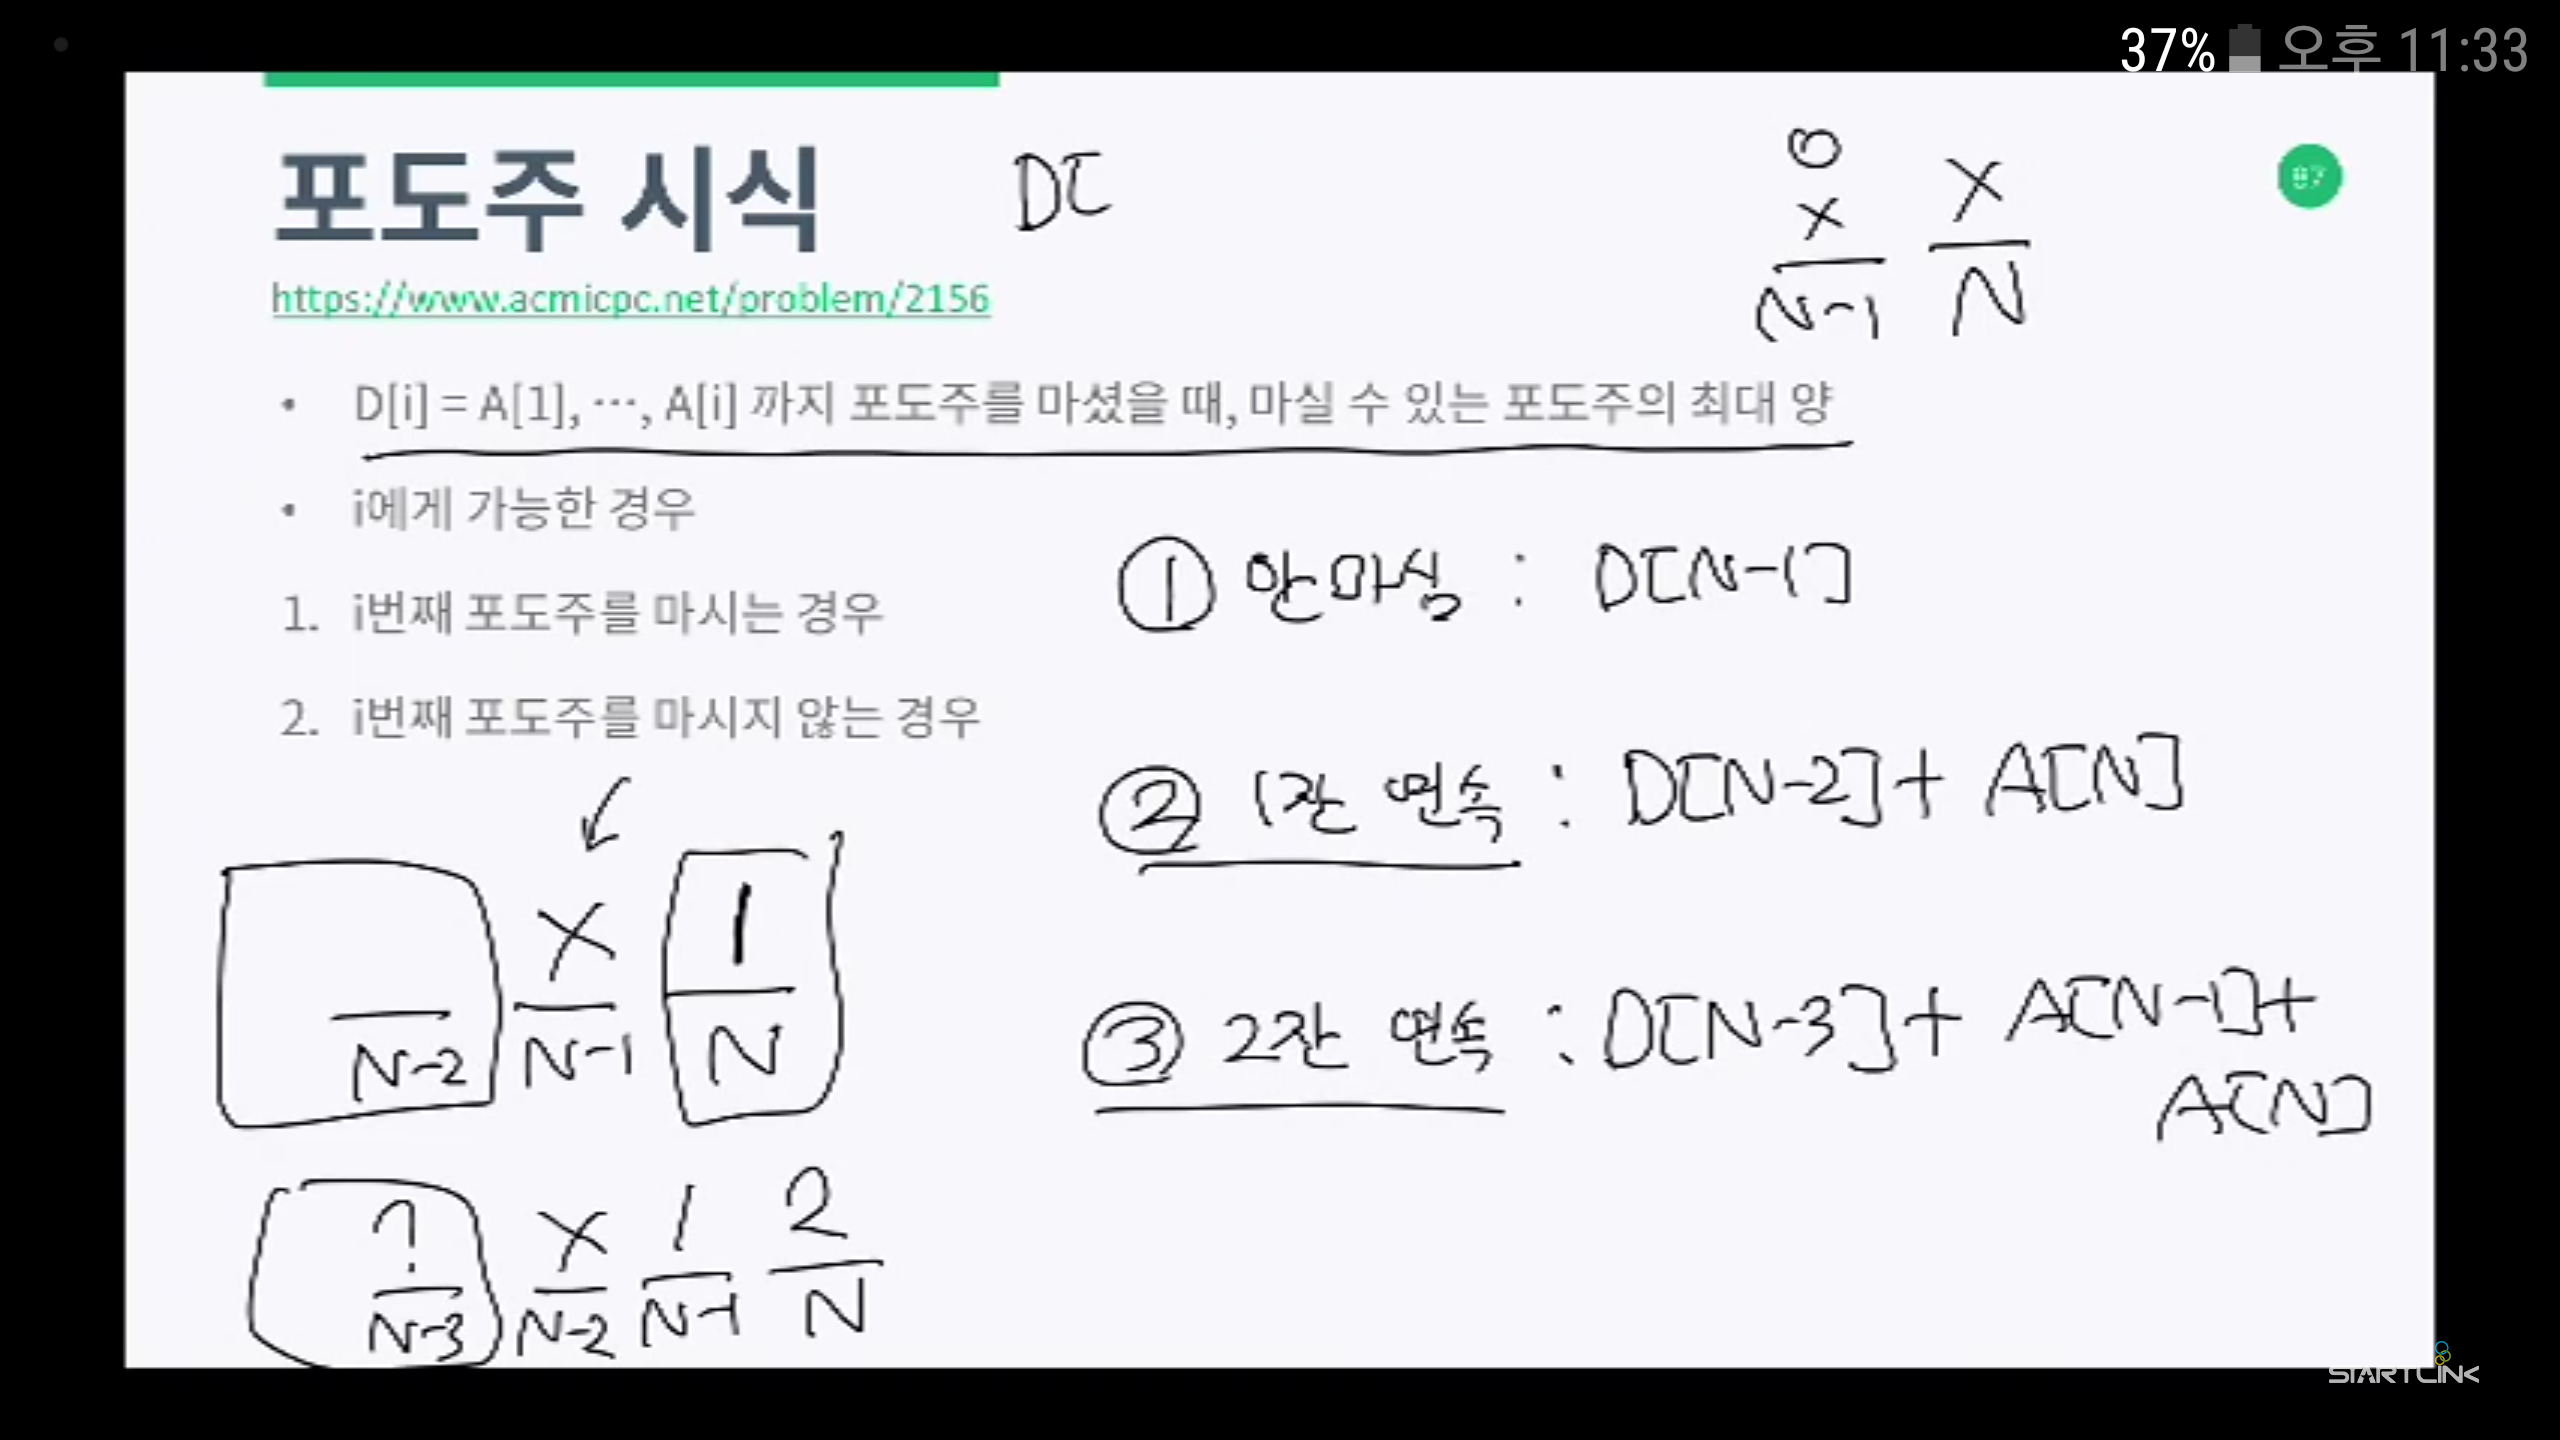 37% 오후 11:33
포도주 시식
D[
O
X X
N-1 N
87
https://www.acmicpc.net/problem/2156
• D[i] = A[1], ···, A[i] 까지 포도주를 마셨을 때, 마실 수 있는 포도주의 최대 양
• i에게 가능한 경우
1. i번째 포도주를 마시는 경우
2. i번째 포도주를 마시지 않는 경우
① 안마심 : D[N-1]
② 1잔 연속 : D[N-2] + A[N]
③ 2잔 연속 : D[N-3] + A[N-1] +
A[N]
X 1
N-2 N-1 N
? X 1 2
N-3 N-2 N-1 N
STARTLINK